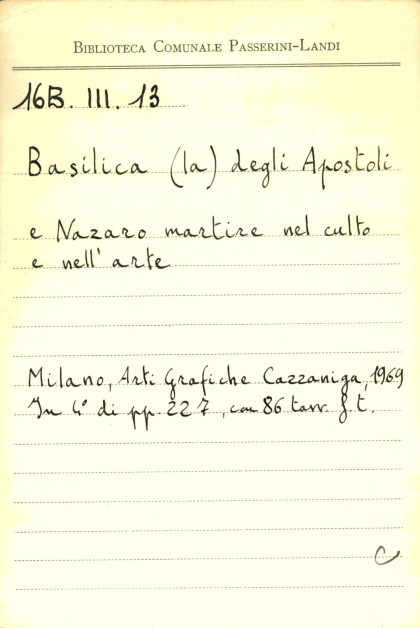 BIBLIOTECA COMUNALE PASSERINI-LANDI
16B. III. 13
Basilica (la) degli Apostoli
e Nazaro martire nel culto
e nell'arte
Milano, Arti Grafiche Cazzaniga, 1969
In 4° di pp. 227, con 86 tavv. f. t.
C